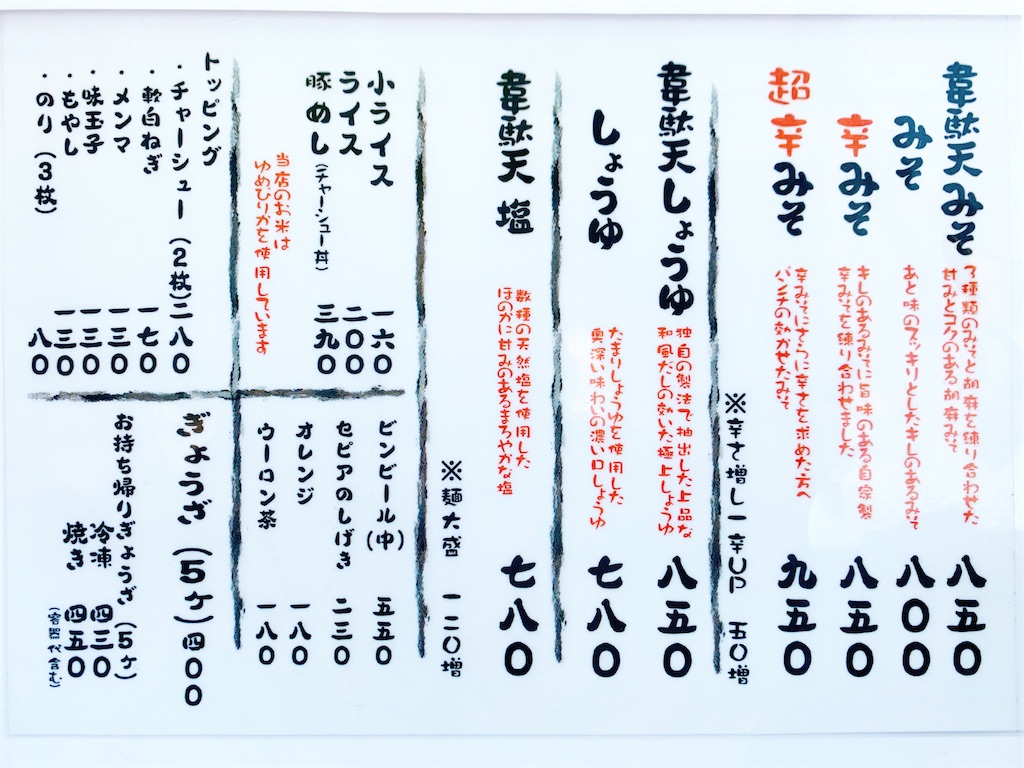 韋駄天みそ
3種類のみそと胡麻を練り合わせた
甘みとコクのある胡麻みそ
八五〇
みそ
あと味のスッキリとしたキレのあるみそ
八〇〇
辛みそ
キレのあるみそに旨味のある自家製
辛みそを練り合わせました
八五〇
超辛みそ
辛みそにさらに辛さを求めた方へ
パンチの効かせたみそ
九五〇
※辛さ増し一辛UP 五〇増
韋駄天しょうゆ
独自の製法で抽出した上品な
和風だしの効いた極上しょうゆ
八五〇
しょうゆ
たまりしょうゆを使用した
奥深い味わいの濃い口しょうゆ
七八〇
韋駄天 塩
数種の天然塩を使用した
ほのかに甘みのあるまろやかな塩
七八〇
※麺大盛 一二〇増
小ライス 一六〇
ライス 二〇〇
豚めし(チャーシュー丼) 三九〇
当店のお米は
ゆめぴりかを使用しています
ビンビール(中) 五五〇
セピアのしげき 二三〇
オレンジ 一八〇
ウーロン茶 一八〇
トッピング
・チャーシュー(2枚) 二八〇
・軟白ねぎ 一七〇
・メンマ 一三〇
・味玉子 一三〇
・もやし 一三〇
・のり(3枚) 八〇
ぎょうざ(5ケ) 四〇〇
お持ち帰りぎょうざ(5ケ)
冷凍 四三〇
焼き 四五〇
(容器代含む)